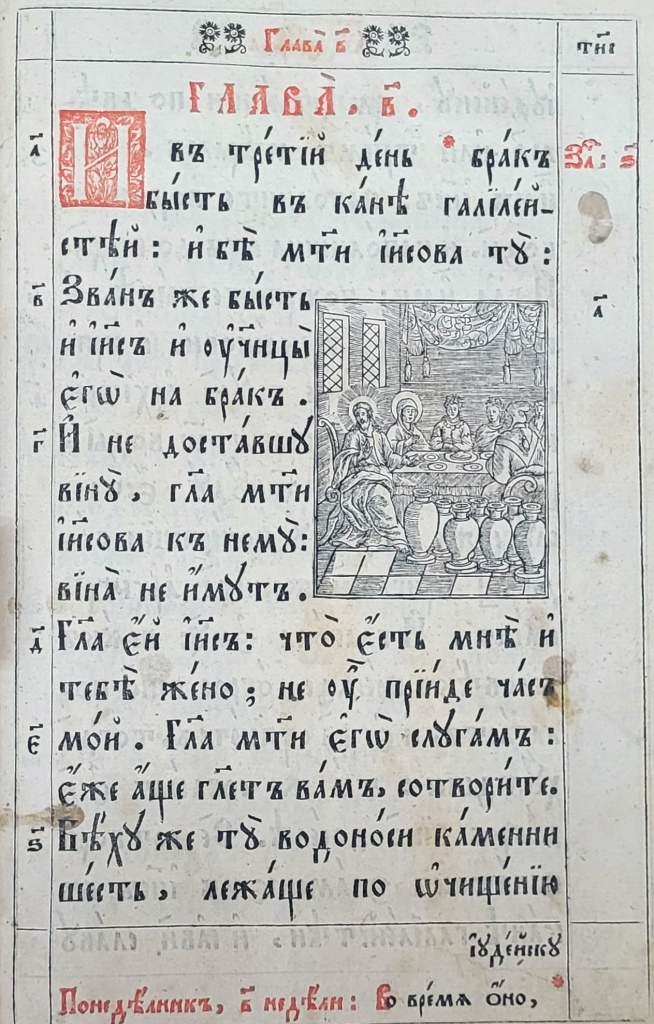 Глава̀ в҃
тн҃є
ГЛАВА̀. в҃.
а҃ И҆ въ тре́тїй де́нь бра́къ За҃: ѕ҃
бы́сть въ ка́нѣ галїле́й-
стѣ́й: и҆ бѣ̀ мт҃и і҆и҃сова тꙋ̀:
в҃ Зва́нъ же бы́сть
а҃
и҆ і҆и҃съ и҆ ᲂу҆чн҃цы̀
є҆гѡ̀ на бра́къ.
г҃ И҆ не доста́вшꙋ
вїнꙋ̀, гл҃а мт҃и
і҆и҃сова къ немꙋ̀:
вїна̀ не и҆́мꙋтъ.
д҃ Гл҃а є҆́й і҆и҃съ: что̀ є҆́сть мнѣ̀ и҆
тебѣ̀ же́но; не ᲂу҆̀ прїи́де ча́съ
є҃ мо́й. Гл҃а мт҃и є҆гѡ̀ слꙋга́мъ:
є҆́же а҆́ще гл҃етъ ва́мъ, сотвори́те.
ѕ҃ Бѣ́хꙋ же тꙋ̀ водоно́си ка́менни
ше́сть, лежа́ще по ѡ҆чище́нїю
і҆ꙋде́йскꙋ
Понедѣ́лникъ, в҃ недѣ́ли: Во вре́мѧ ѻ҆́но,